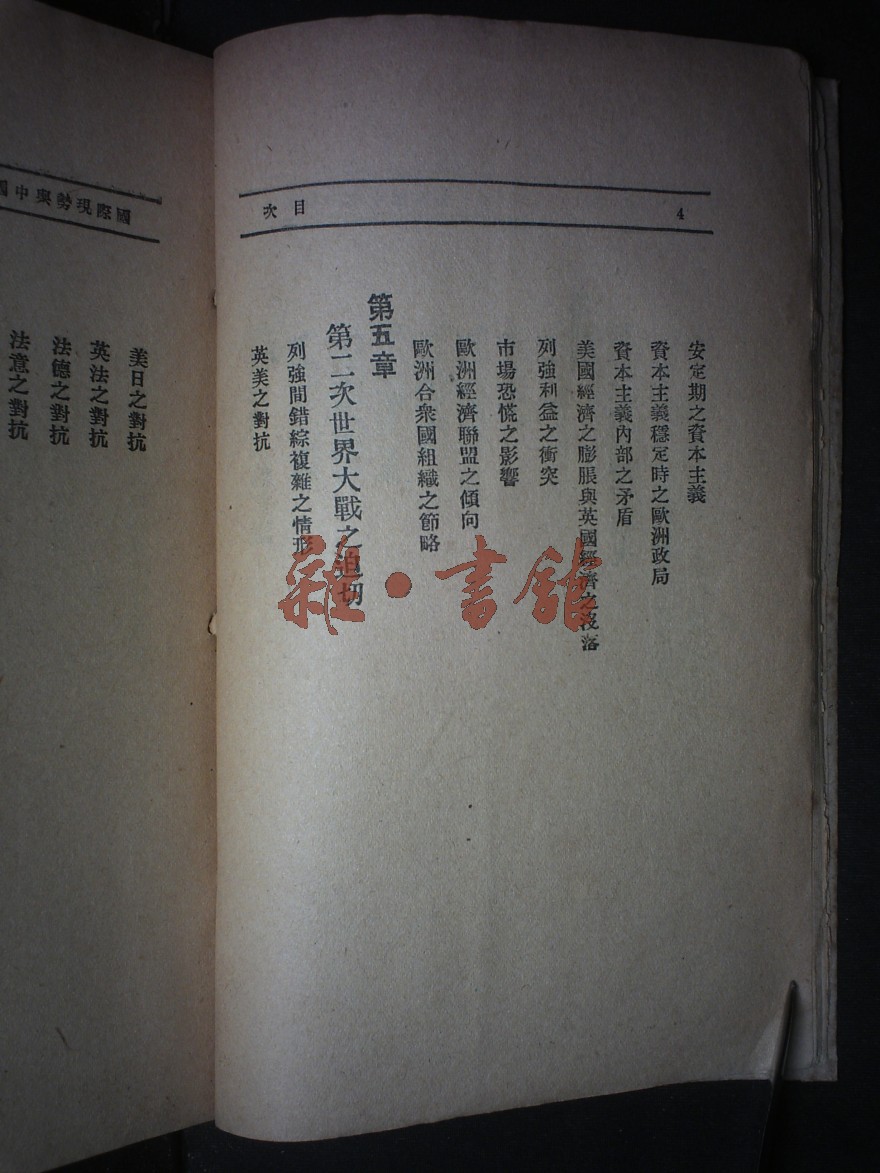 目次
4
安定期之資本主義
資本主義穩定時之歐洲政局
資本主義內部之矛盾
美國經濟之膨脹與英國經濟之沒落
列強利益之衝突
市場恐慌之影響
歐洲經濟聯盟之傾向
歐洲合衆國組織之節略
第五章
第二次世界大戰之迫切
列強間錯綜複雜之情形
英美之對抗
雜·書館
國際現勢與中國
美日之對抗
英法之對抗
法德之對抗
法意之對抗